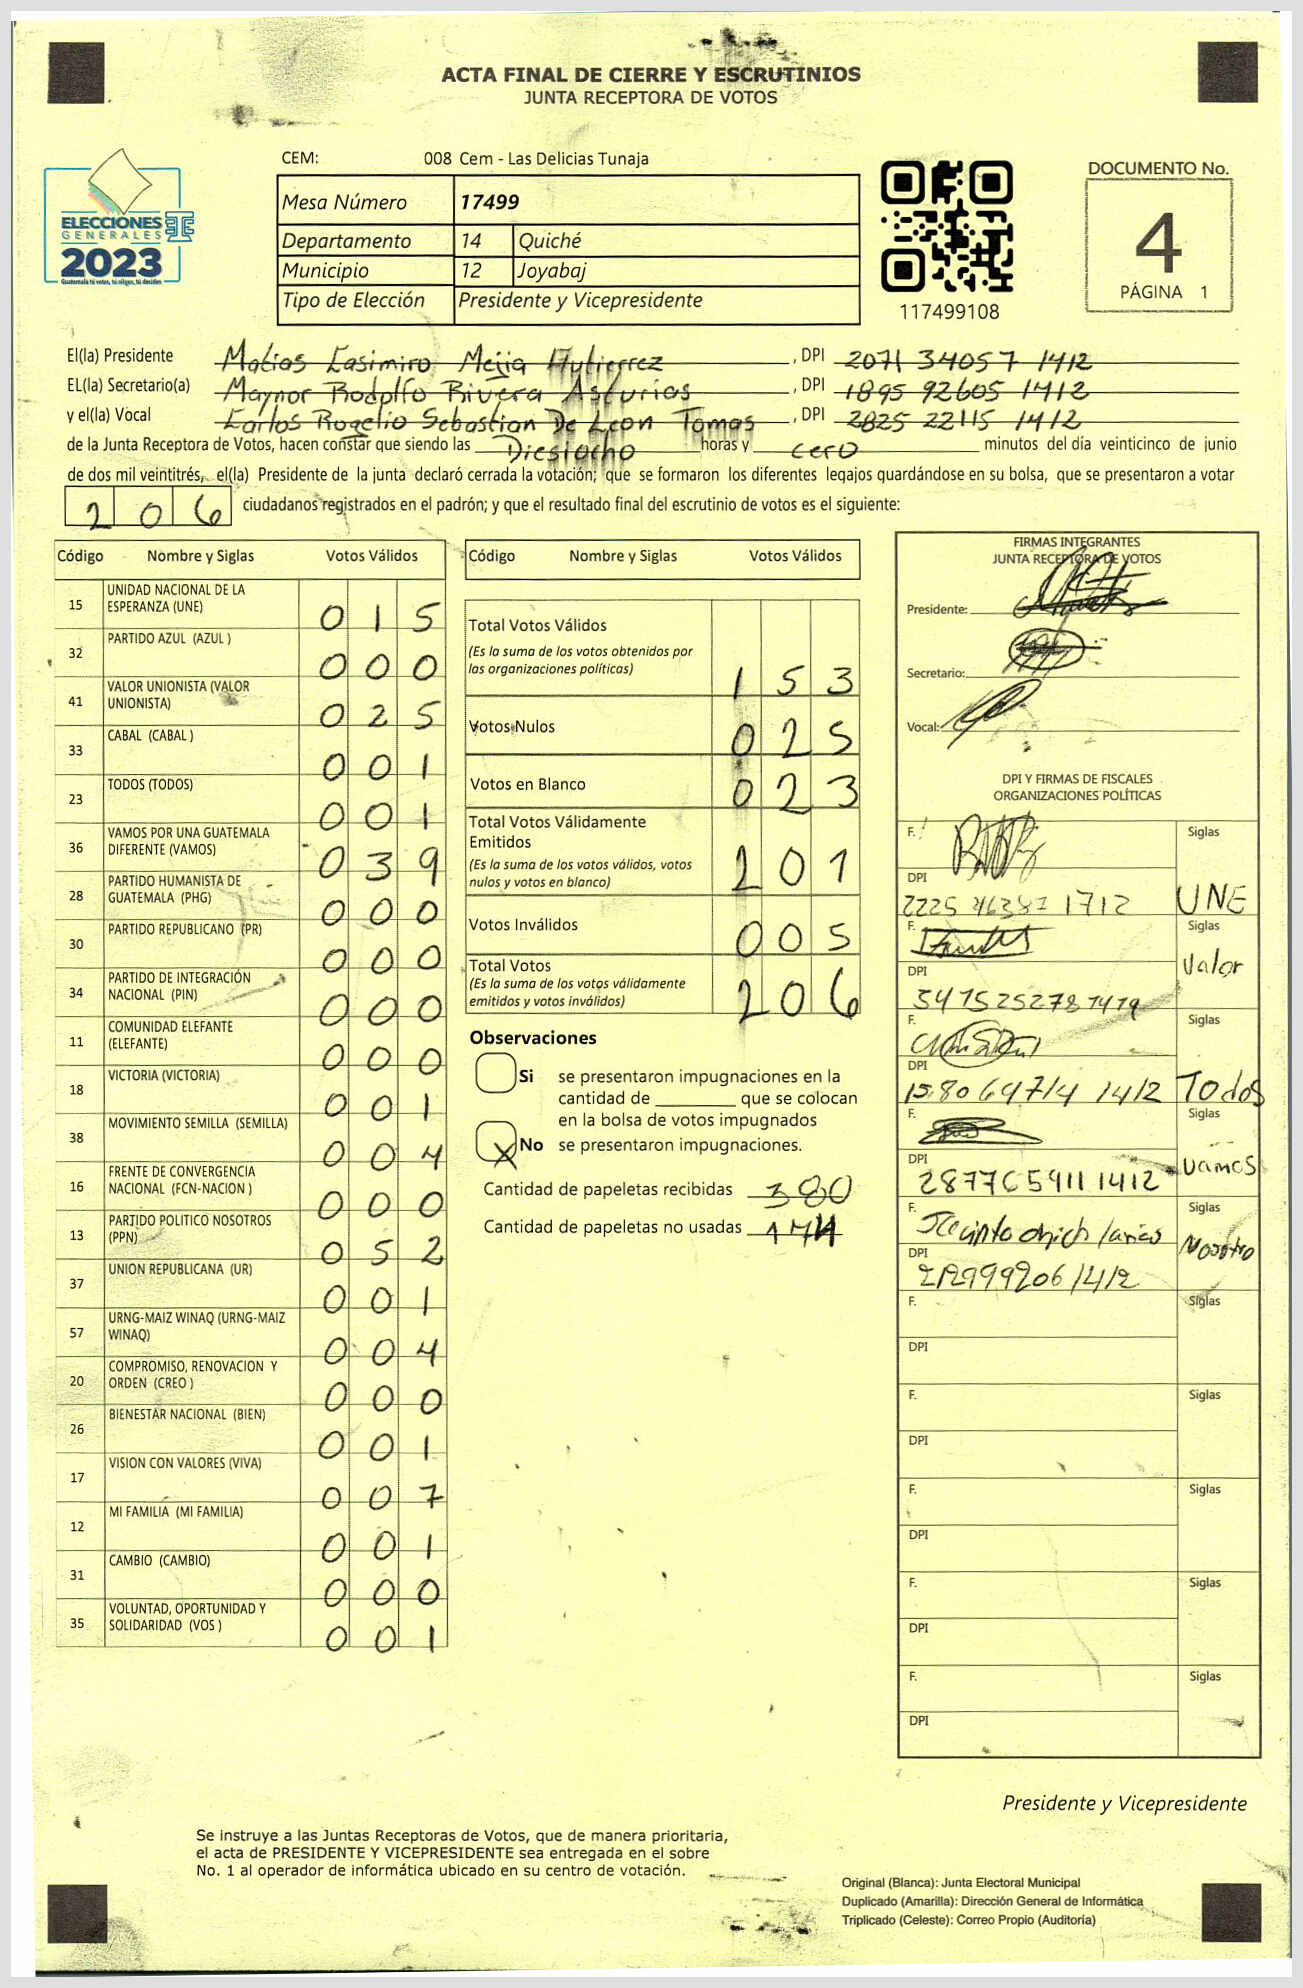 ACTA FINAL DE CIERRE Y ESCRUTINIOS
JUNTA RECEPTORA DE VOTOS
CEM: 008 Cem - Las Delicias Tunaja
Mesa Número 17499
Departamento 14 Quiché
Municipio 12 Joyabaj
Tipo de Elección Presidente y Vicepresidente
ELECCIONES
GENERALES
2023
Guatemala tú votas, tú eliges, tú decides
117499108
DOCUMENTO No.
4
PÁGINA 1
El(la) Presidente Matias Casimiro Mejia Gutierrez, DPI 2071 34057 1412
EL(la) Secretario(a) Maynor Rodolfo Rivera Asturias, DPI 1895 92605 1412
y el(la) Vocal Carlos Rogelio Sebastian De Leon Tomas, DPI 2825 22115 1412
de la Junta Receptora de Votos, hacen constar que siendo las Diesiocho horas y cero minutos del día veinticinco de junio
de dos mil veintitrés, el(la) Presidente de la junta declaró cerrada la votación; que se formaron los diferentes legajos quardándose en su bolsa, que se presentaron a votar
206 ciudadanos registrados en el padrón; y que el resultado final del escrutinio de votos es el siguiente:
Código Nombre y Siglas Votos Válidos
15 UNIDAD NACIONAL DE LA ESPERANZA (UNE) 015
32 PARTIDO AZUL (AZUL ) 000
41 VALOR UNIONISTA (VALOR UNIONISTA) 025
33 CABAL (CABAL ) 001
23 TODOS (TODOS) 001
36 VAMOS POR UNA GUATEMALA DIFERENTE (VAMOS) 039
28 PARTIDO HUMANISTA DE GUATEMALA (PHG) 000
30 PARTIDO REPUBLICANO (PR) 000
34 PARTIDO DE INTEGRACIÓN NACIONAL (PIN) 000
11 COMUNIDAD ELEFANTE (ELEFANTE) 000
18 VICTORIA (VICTORIA) 001
38 MOVIMIENTO SEMILLA (SEMILLA) 004
16 FRENTE DE CONVERGENCIA NACIONAL (FCN-NACION ) 000
13 PARTIDO POLITICO NOSOTROS (PPN) 052
37 UNION REPUBLICANA (UR) 001
57 URNG-MAIZ WINAQ (URNG-MAIZ WINAQ) 004
20 COMPROMISO, RENOVACION Y ORDEN (CREO ) 000
26 BIENESTAR NACIONAL (BIEN) 001
17 VISION CON VALORES (VIVA) 007
12 MI FAMILIA (MI FAMILIA) 001
31 CAMBIO (CAMBIO) 000
35 VOLUNTAD, OPORTUNIDAD Y SOLIDARIDAD (VOS ) 001
Código Nombre y Siglas Votos Válidos
Total Votos Válidos
(Es la suma de los votos obtenidos por
las organizaciones políticas) 153
Votos Nulos 025
Votos en Blanco 023
Total Votos Válidamente
Emitidos
(Es la suma de los votos válidos, votos
nulos y votos en blanco) 201
Votos Inválidos 005
Total Votos
(Es la suma de los votos válidamente
emitidos y votos inválidos) 206
Observaciones
Si se presentaron impugnaciones en la
cantidad de ________ que se colocan
en la bolsa de votos impugnados
X No se presentaron impugnaciones.
Cantidad de papeletas recibidas 380
Cantidad de papeletas no usadas 174
FIRMAS INTEGRANTES
JUNTA RECEPTORA DE VOTOS
Presidente:
Secretario:
Vocal:
DPI Y FIRMAS DE FISCALES
ORGANIZACIONES POLÍTICAS
F. Siglas
DPI 1712 UNE
F. Siglas
DPI Valor
F. Siglas
DPI 1412 Todos
F. Siglas
DPI 2877659111412 vamos
F. Jacinto Siglas
DPI Nosotro
F. Siglas
DPI
F. Siglas
DPI
F. Siglas
DPI
F. Siglas
DPI
F. Siglas
DPI
Presidente y Vicepresidente
Se instruye a las Juntas Receptoras de Votos, que de manera prioritaria,
el acta de PRESIDENTE Y VICEPRESIDENTE sea entregada en el sobre
No. 1 al operador de informática ubicado en su centro de votación.
Original (Blanca): Junta Electoral Municipal
Duplicado (Amarilla): Dirección General de Informática
Triplicado (Celeste): Correo Propio (Auditoría)